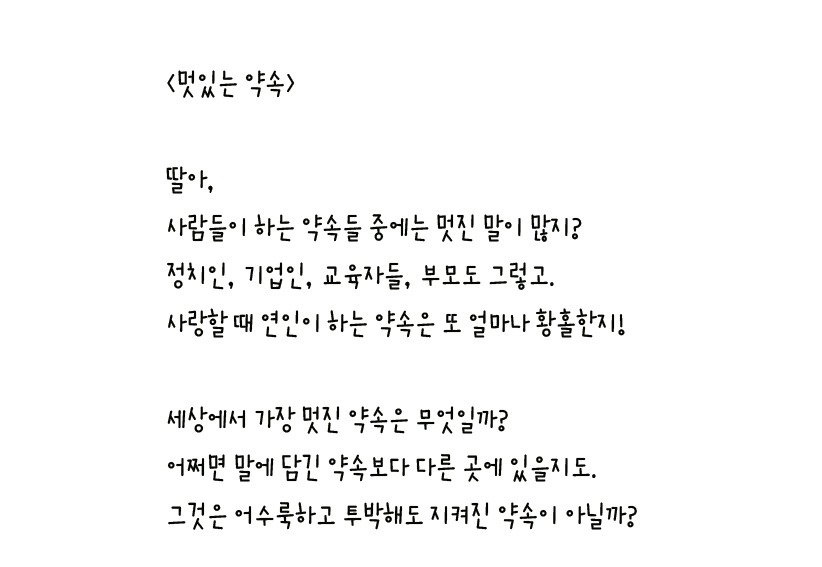 <멋있는 약속>
딸아,
사람들이 하는 약속들 중에는 멋진 말이 많지?
정치인, 기업인, 교육자들, 부모도 그렇고.
사랑할 때 연인이 하는 약속은 또 얼마나 황홀한지!
세상에서 가장 멋진 약속은 무엇일까?
어쩌면 말에 담긴 약속보다 다른 곳에 있을지도.
그것은 어수룩하고 투박해도 지켜진 약속이 아닐까?